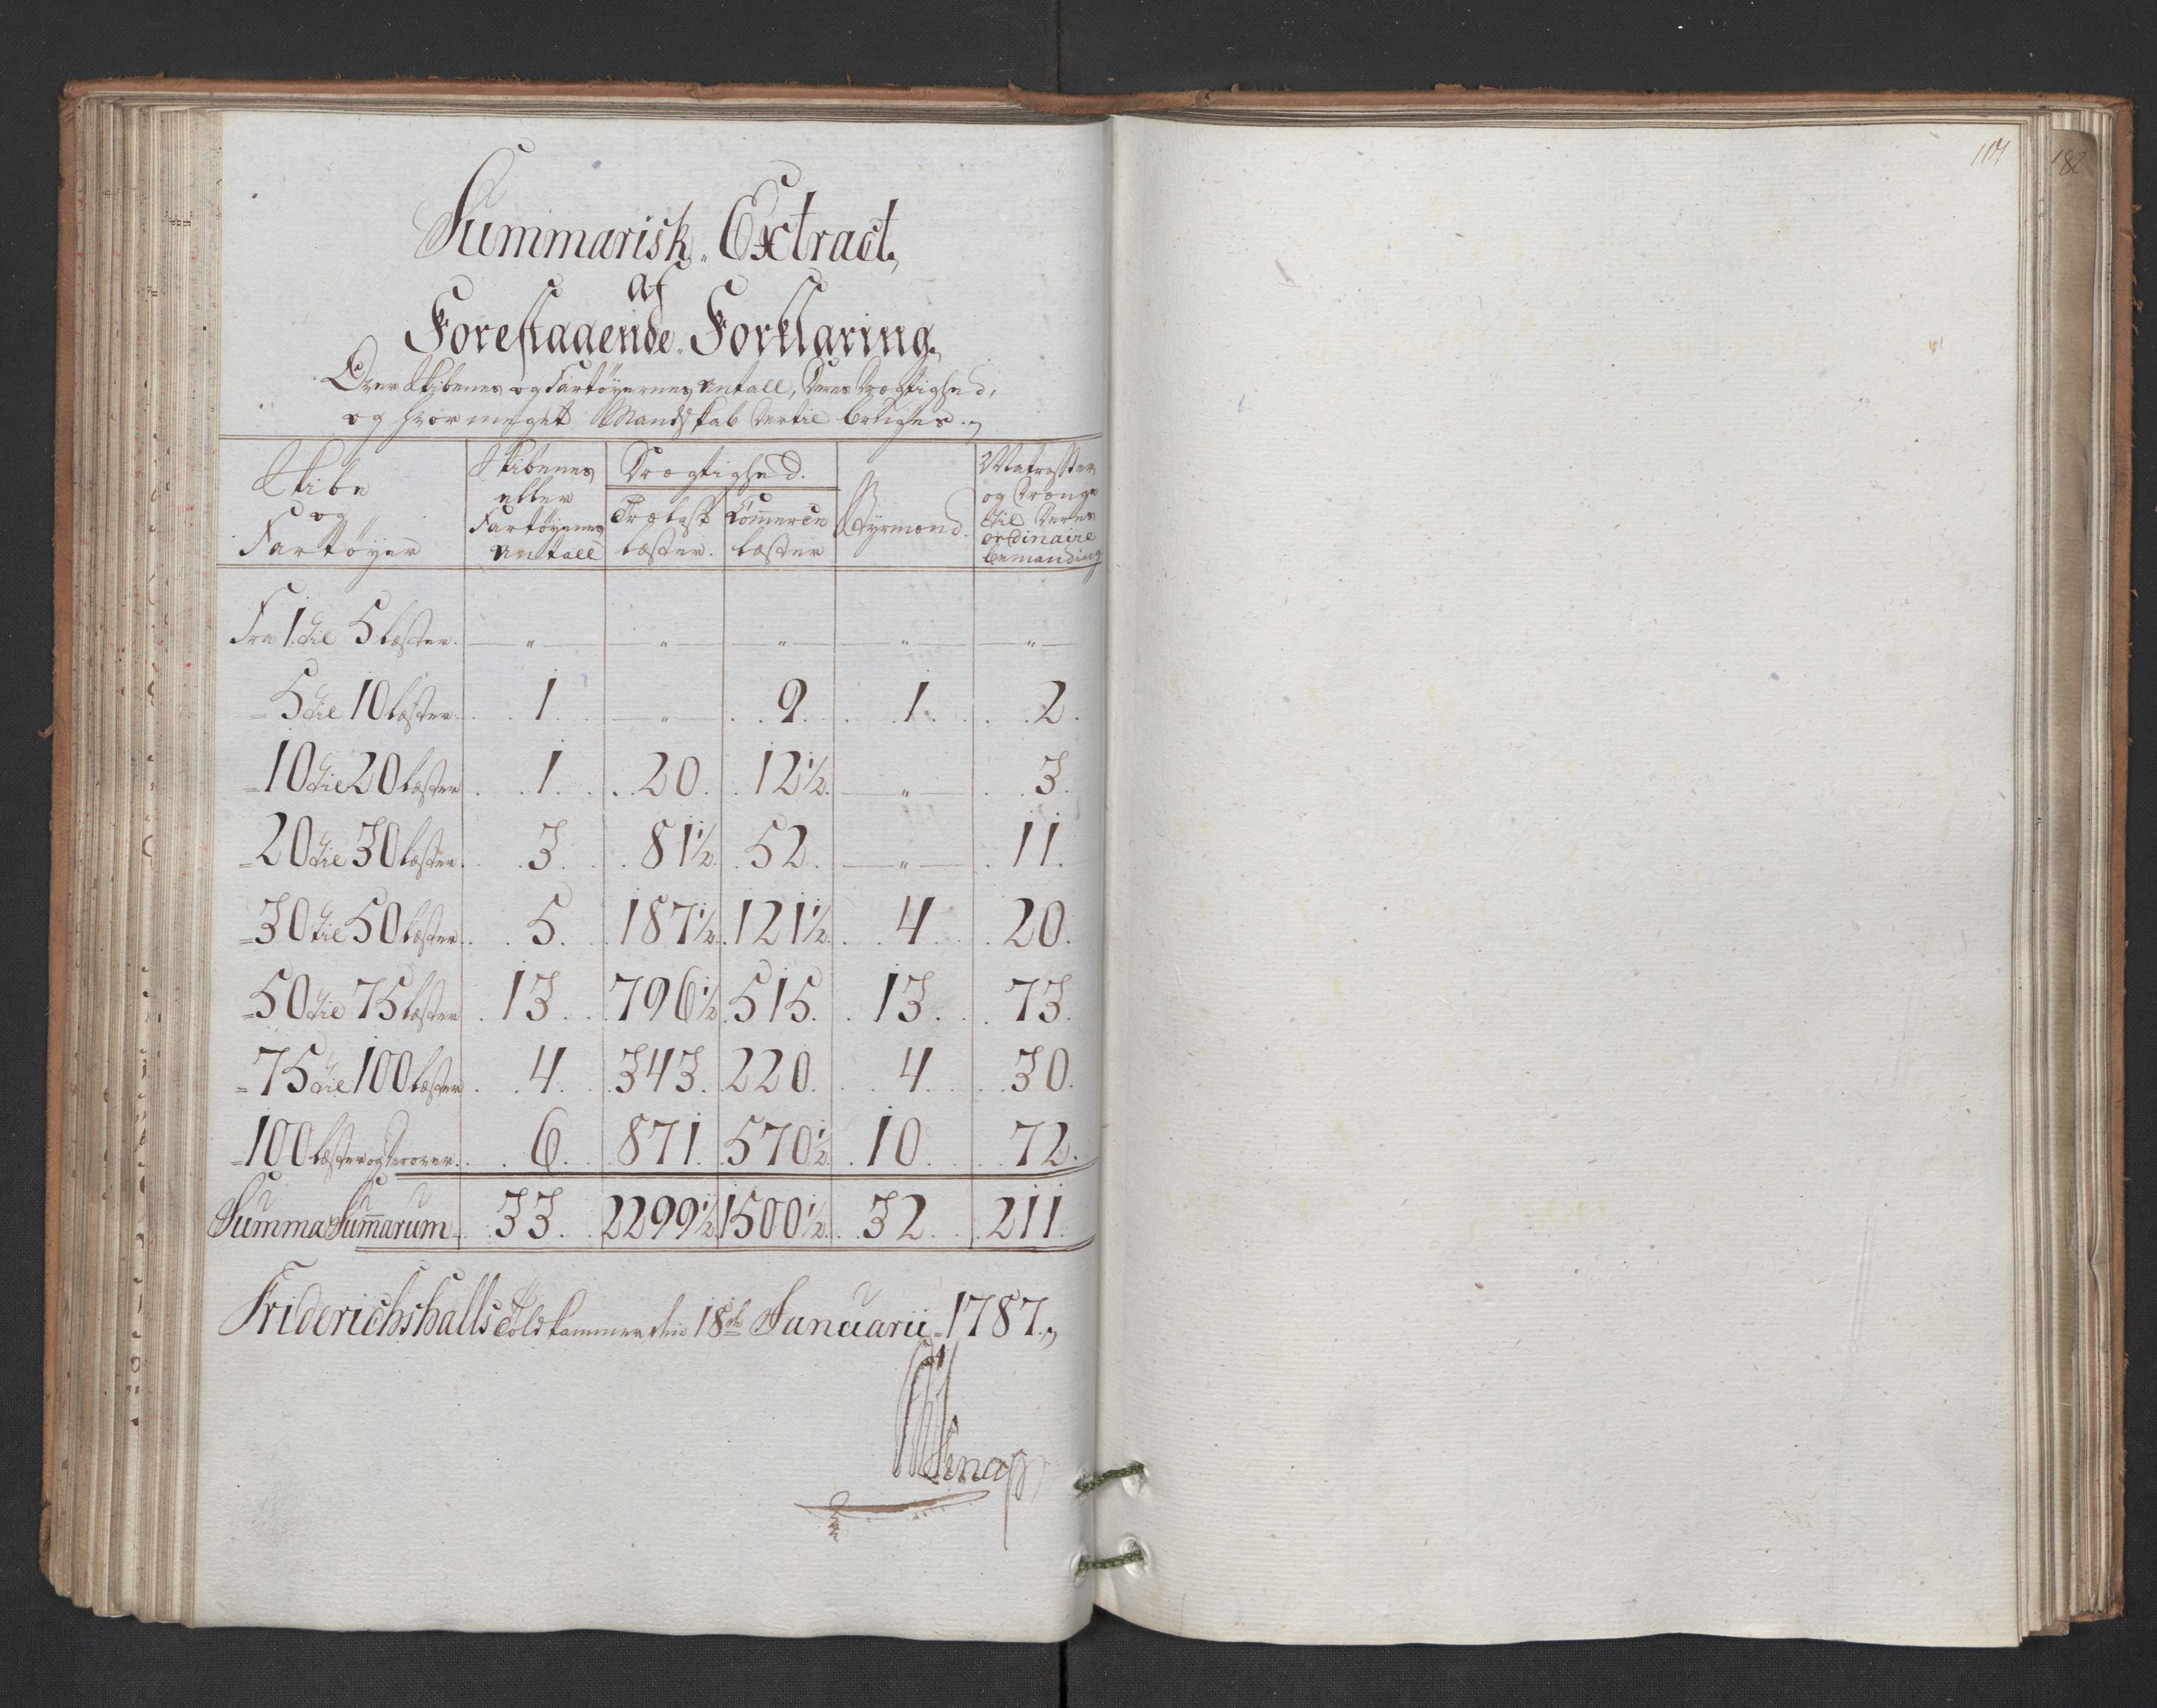 Summarisk Extract,
af
Forestaaende Forklaring,
Over Skibenes og Fartöyernes Antall, deres Drægtighed,
og hvor meget Mandskab dertil bruges.
Skibe
og
Fartöyer
Skibenes
eller
Fartöyernes
Antall
Drægtighed.
Trælast
læster.
Commerce
læster
Styrmænd.
Matrosser
og Drænge
til deres
ordinaire
bemanding
Fra 1 til 5 læster. " " " " "
= 5 til 10 læster. 1. " 9. 1. 2.
= 10 til 20 læster 1. 20. 12 1/2. " 3.
= 20 til 30 læster. 3. 81 1/2. 52. " 11.
= 30 til 50 læster. 5. 187 1/2. 121 1/2. 4. 20.
= 50 til 75 læster 13. 796 1/2. 515. 13. 73.
= 75 til 100 læster 4. 343. 220. 4. 30.
= 100 læster og derover. 6. 871. 570 1/2. 10. 72.
Summa Summarum 33. 2299 1/2. 1500 1/2. 32. 211.
Friderichshalls Toldkammer den 18de Januarii 1787.
182